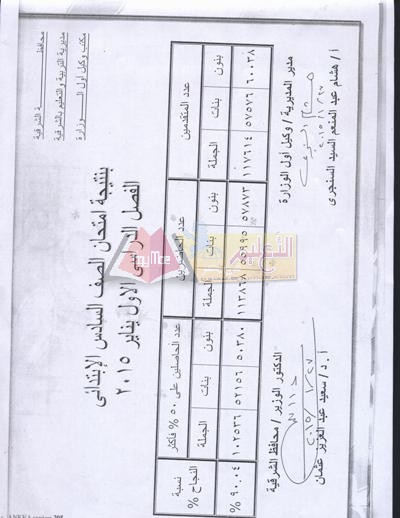 محافظة الشرقية
مديرية التربية والتعليم بالشرقية
مكتب وكيل أول الوزارة
بنتيجة امتحان الصف السادس الإبتدائى
الفصل الدراسى الاول يناير ٢٠١٥
عدد المتقدمين عدد الحاضرين عدد الحاصلين على ٥٠ % فأكثر نسبة النجاح %
بنون بنات الجملة بنون بنات الجملة بنون بنات الجملة
٦٠٠٣٨ ٥٧٥٧٦ ١١٧٦١٤ ٥٧٨٧٣ ٥٥٩٩٥ ١١٣٨٦٨ ٥٠٣٨٠ ٥٢١٥٦ ١٠٢٥٣٦ ٩٠.٠٤ %
مدير المديرية / وكيل أول الوزارة
٢٠١٥/١/٢٧
أ / هشام عبد المنعم السيد السنجرى
الدكتور الوزير / محافظ الشرقية
٢٠١٥/١/٢٧
أ . د / سعيد عبد العزيز عثمان
التعليم